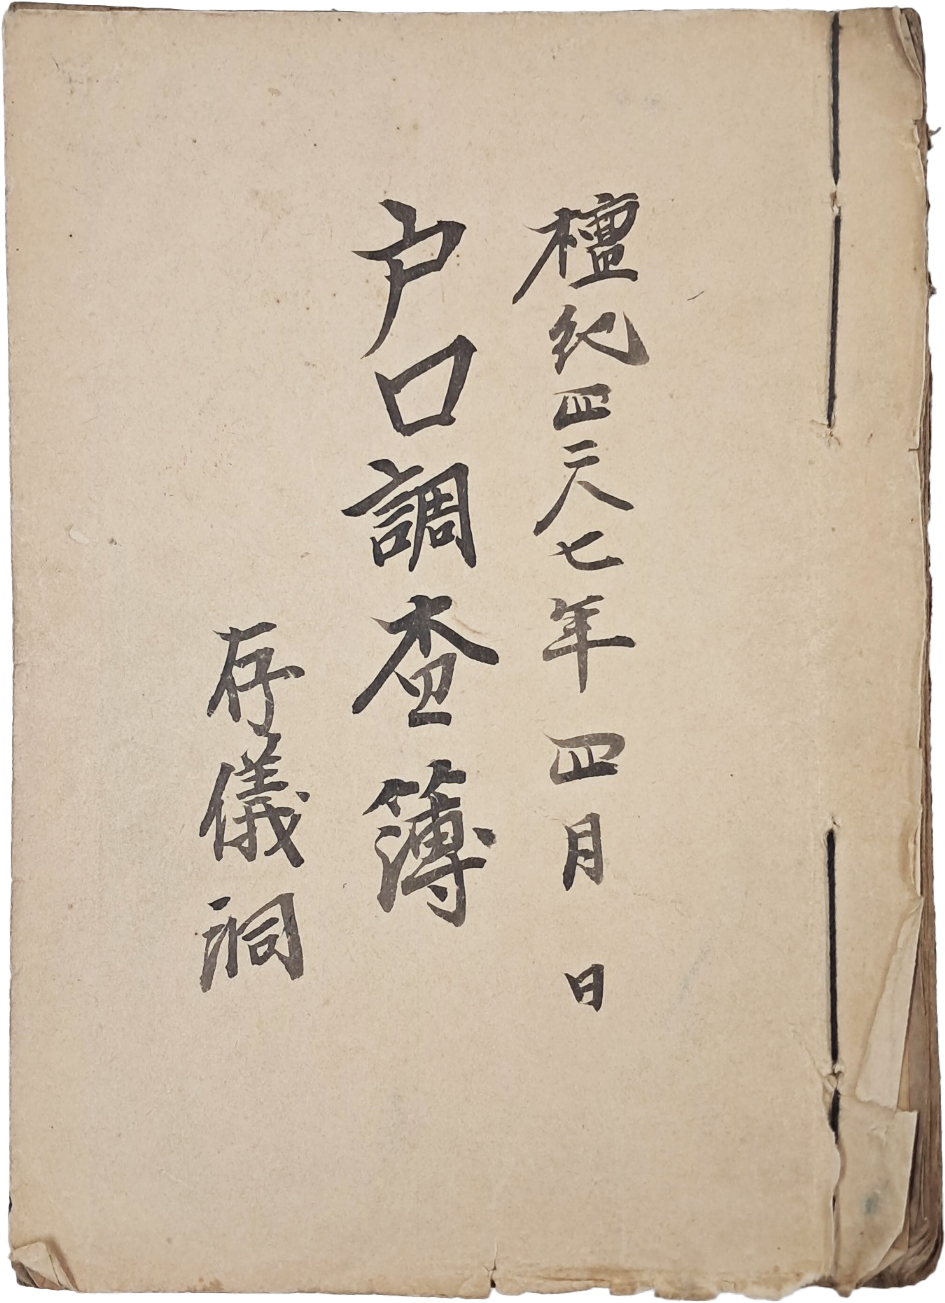 檀紀四二八七年四月 日
户口調查簿
存儀洞